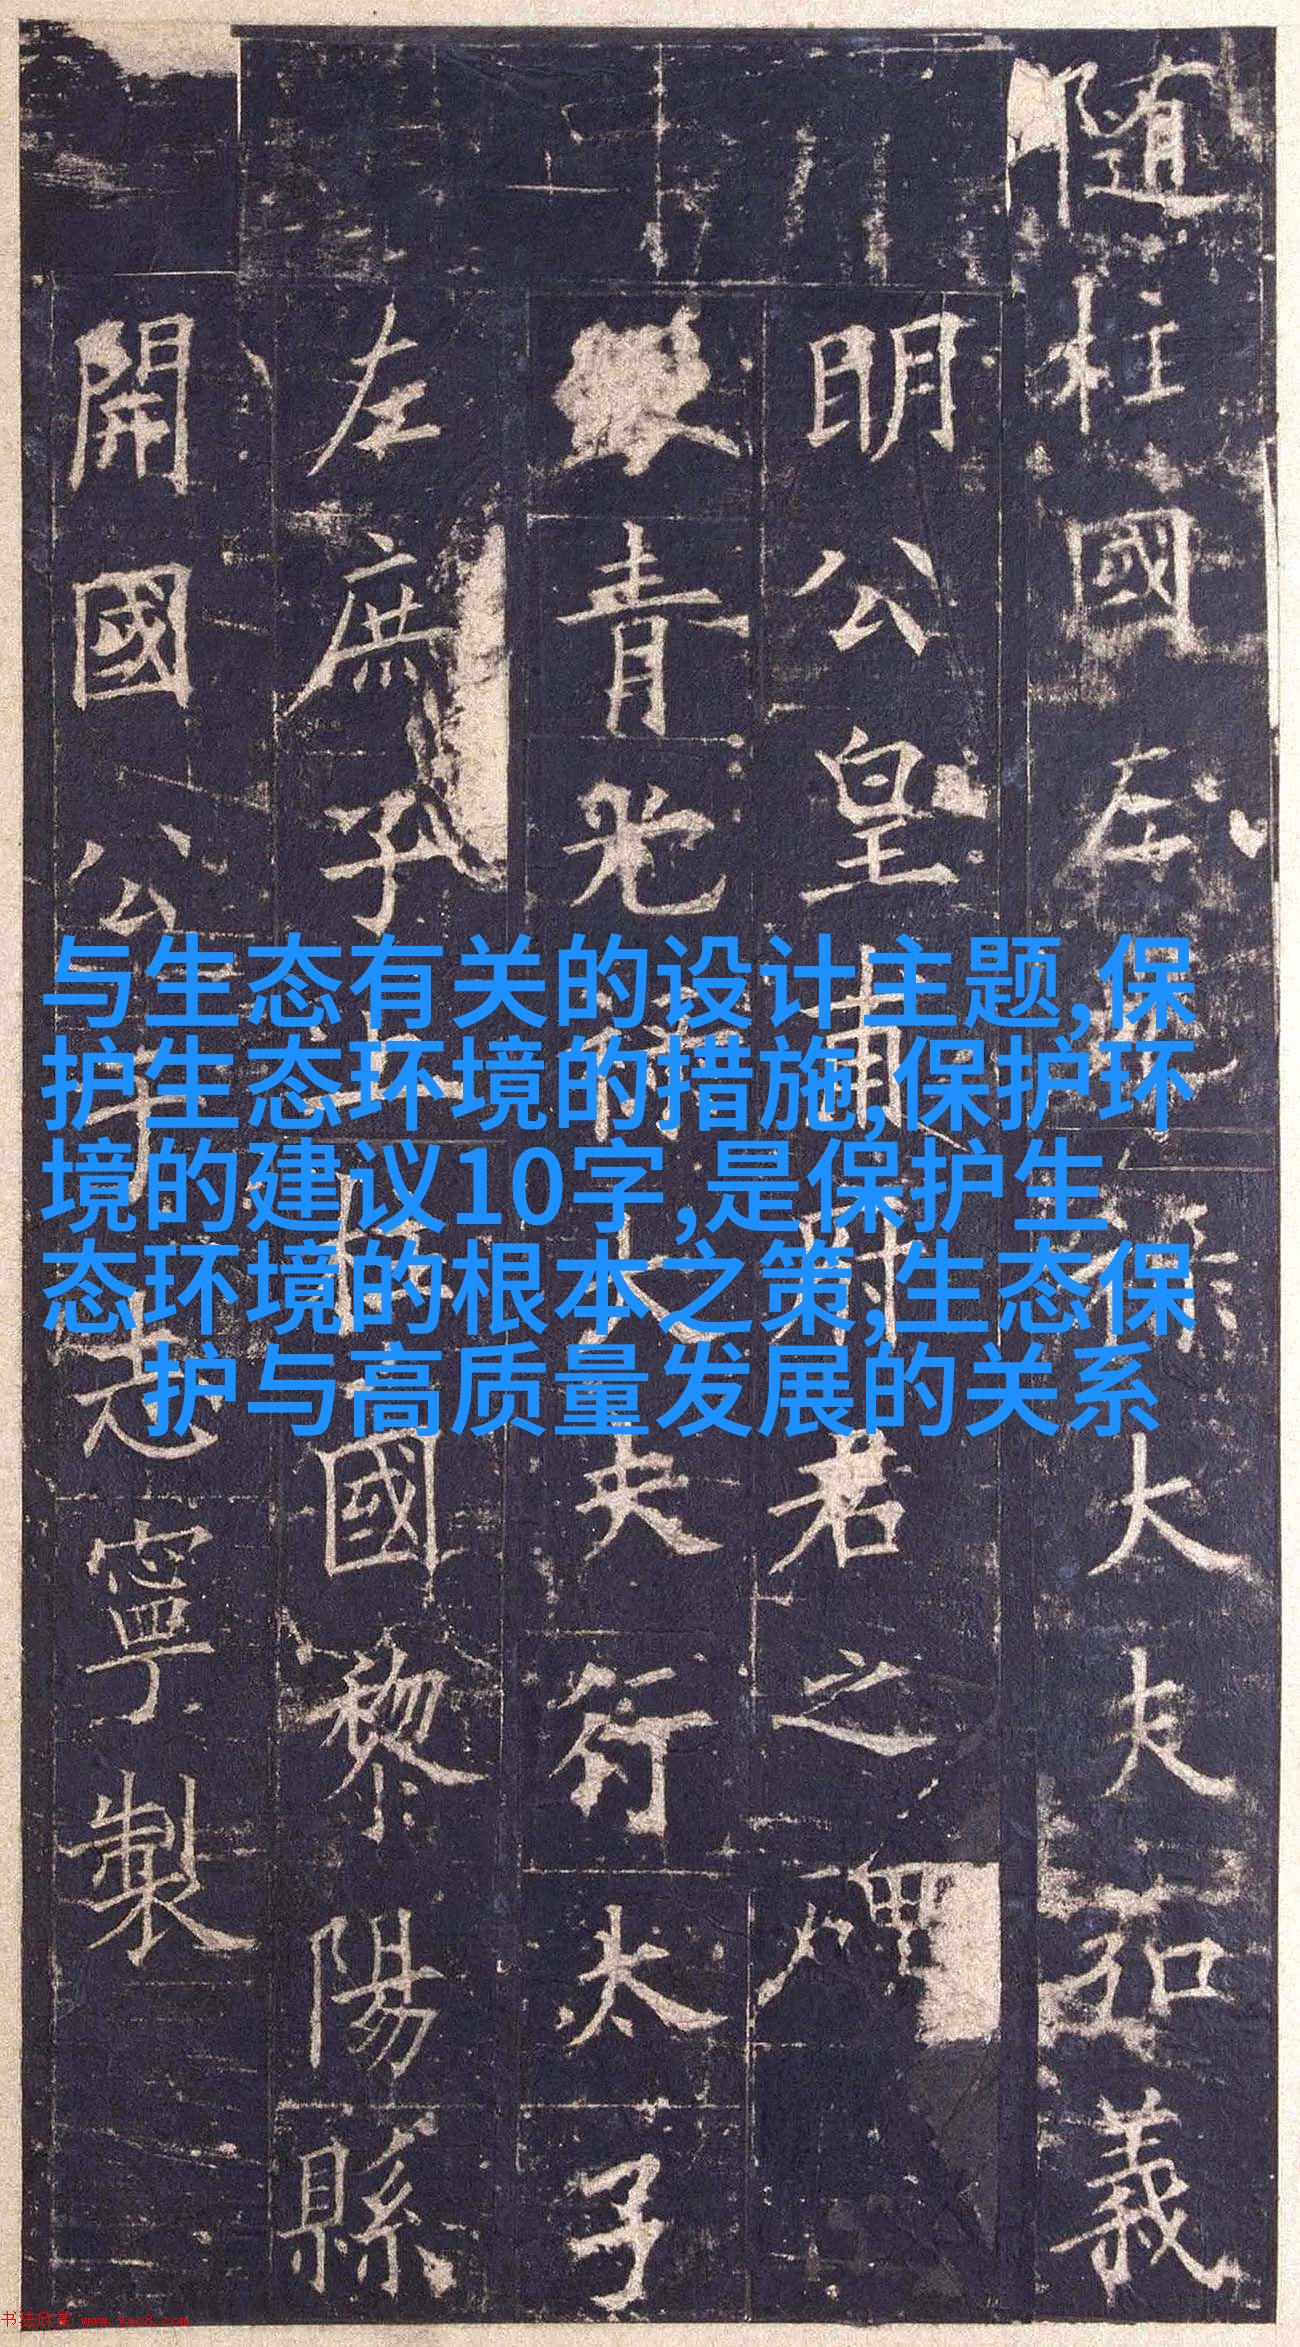 随柱國左光禄大夫弘義
明公皇甫府君之碑
銀青光禄大夫行太子
左庶子上柱國黎陽縣
開國公于志寧製
与生态有关的设计主题,保
护生态环境的措施,保护环
境的建议10字,是保护生
态环境的根本之策,生态保
护与高质量发展的关系
书法欣赏 www.yac8.com